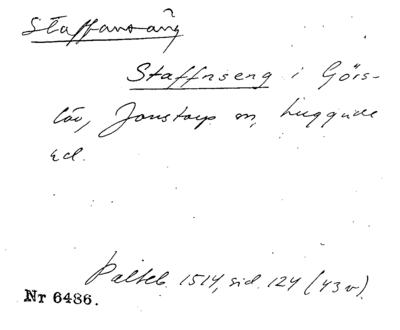 Staffansäng
Staffnseng i Görs-
löv, Jonstorp sn, Luggude
hd.
Palteb. 1514, sid. 124 (43v).
Nr 6486.